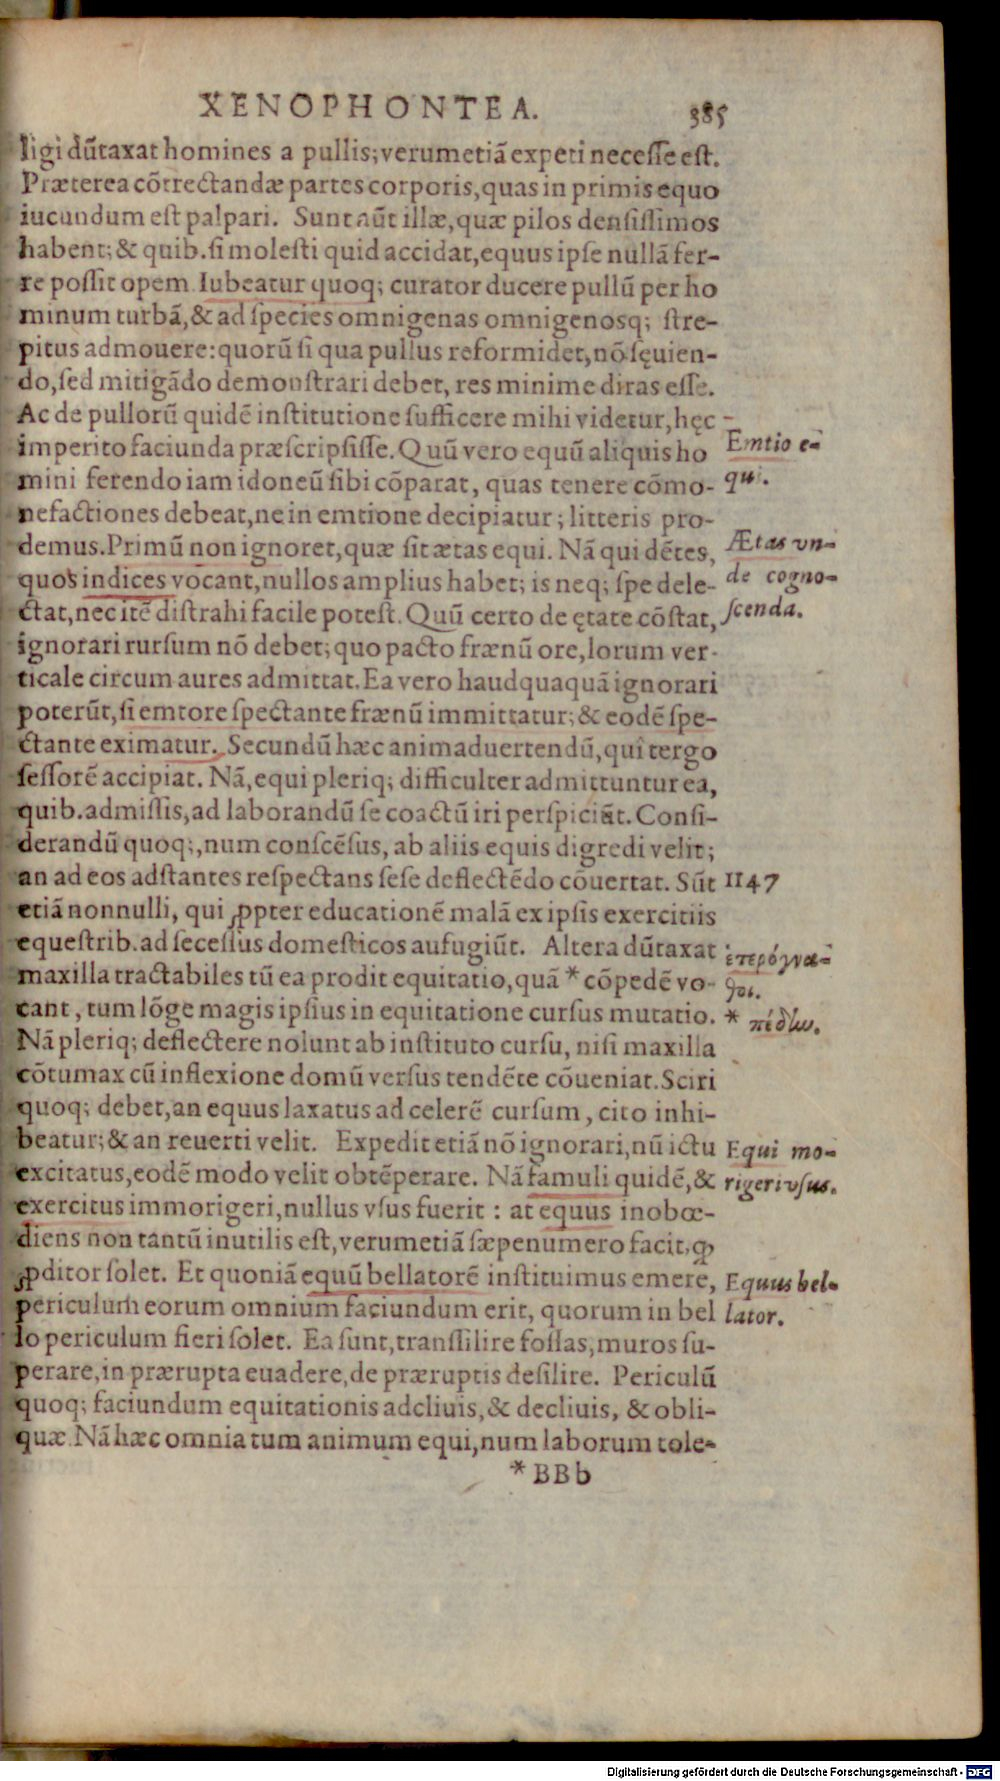 XENOPHONTEA. 385
ligi dūtaxat homines a pullis; verumetiā expeti necesse est.
Præterea cōtrectandæ partes corporis, quas in primis equo
iucundum est palpari. Sunt aūt illæ, quæ pilos densissimos
habent; & quib. si molesti quid accidat, equus ipse nullā fer-
re possit opem. Iubeatur quoq; curator ducere pullū per ho
minum turbā, & ad species omnigenas omnigenosq; stre-
pitus admouere: quorū si qua pullus reformidet, nō sęuien-
do, sed mitigādo demonstrari debet, res minime diras esse.
Ac de pullorū quidē institutione sufficere mihi videtur, hęc
imperito faciunda præscripsisse. Quū vero equū aliquis ho
mini ferendo iam idoneū sibi cōparat, quas tenere cōmo-
nefactiones debeat, ne in emtione decipiatur; litteris pro-
demus. Primū non ignoret, quæ sit ætas equi. Nā qui dētes,
quos indices vocant, nullos amplius habet; is neq; spe dele-
ctat, nec itē distrahi facile potest. Quū certo de ętate cōstat,
ignorari rursum nō debet; quo pacto frænū ore, lorum ver-
ticale circum aures admittat. Ea vero haudquaquā ignorari
poterūt, si emtore spectante frænū immittatur; & eodē spe-
ctante eximatur. Secundū hæc animaduertendū, quî tergo
sessorē accipiat. Nā, equi pleriq; difficulter admittuntur ea,
quib. admissis, ad laborandū se coactū iri perspiciāt. Consi-
derandū quoq;, num conscēsus, ab aliis equis digredi velit;
an ad eos adstantes respectans sese deflectēdo cōuertat. Sūt
etiā nonnulli, qui ꝓpter educationē malā ex ipsis exercitiis
equestrib. ad secessus domesticos aufugiūt. Altera dūtaxat
maxilla tractabiles tū ea prodit equitatio, quā * cōpedē vo-
cant, tum lōge magis ipsius in equitatione cursus mutatio.
Nā pleriq; deflectere nolunt ab instituto cursu, nisi maxilla
cōtumax cū inflexione domū versus tendēte cōueniat. Sciri
quoq; debet, an equus laxatus ad celerē cursum, cito inhi-
beatur; & an reuerti velit. Expedit etiā nō ignorari, nū ictu
excitatus, eodē modo velit obtēperare. Nā famuli quidē, &
exercitus immorigeri, nullus vsus fuerit : at equus inobœ-
diens non tantū inutilis est, verumetiā sæpenumero facit, ꝙ
ꝓditor solet. Et quoniā equū bellatorē instituimus emere,
periculum eorum omnium faciundum erit, quorum in bel
lo periculum fieri solet. Ea sunt, transsilire fossas, muros su-
perare, in prærupta euadere, de præruptis desilire. Periculū
quoq; faciundum equitationis adcliuis, & decliuis, & obli-
quæ. Nā hæc omnia tum animum equi, num laborum tole-
*BBb
Emtio e-
qui.
Ætas vn-
de cogno-
scenda.
1147
ἑτερόγνα-
θοι.
* πέδων.
Equi mo-
rigeri vsus.
Equus bel-
lator.
Digitalisierung gefördert durch die Deutsche Forschungsgemeinschaft - DFG